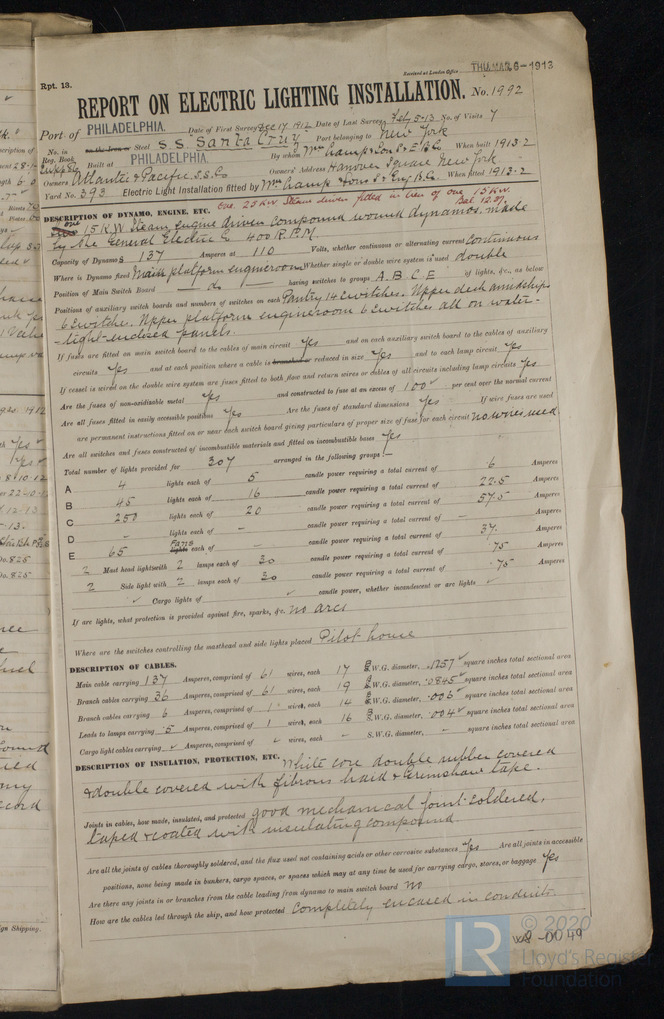 Rpt. 13.
Received at London Office THU. MAR. 6-1913
REPORT ON ELECTRIC LIGHTING INSTALLATION. No. 1992
Port of PHILADELPHIA. Date of First Survey Dec 17 1912 Date of Last Survey Feb 5-13 No. of Visits 7
No. in Reg. Book on the Iron or Steel S.S. Santa Cruz Port belonging to New York
Supp 89 Built at PHILADELPHIA. By whom Wm Cramp & Sons S & E B Co When built 1913.2
Owners Atlantic & Pacific S.S. Co Owners' Address Hanover Square New York
Yard No. 393 Electric Light Installation fitted by Wm Cramp & Sons S & Eng B. Co. When fitted 1913.2
One 25 K.W. Steam driven fitted in lieu of one 15 K.W.
DESCRIPTION OF DYNAMO, ENGINE, ETC.
15 K.W. Steam engine driven compound wound dynamos. made
by the General Electric Co 400 R.P.M.
Capacity of Dynamos 137 Amperes at 110 Volts, whether continuous or alternating current continuous
Where is Dynamo fixed Main platform engineroom Whether single or double wire system is used double
Position of Main Switch Board — do — having switches to groups A. B. C. E of lights, &c., as below
Positions of auxiliary switch boards and numbers of switches on each Pantry 14 switches. Upper deck amidships
6 switches. Upper platform engineroom 6 switches all on water-
-tight-enclosed panels.
If fuses are fitted on main switch board to the cables of main circuit yes and on each auxiliary switch board to the cables of auxiliary
circuits yes and at each position where a cable is branched or reduced in size yes and to each lamp circuit yes
If vessel is wired on the double wire system are fuses fitted to both flow and return wires or cables of all circuits including lamp circuits yes
Are the fuses of non-oxidizable metal yes and constructed to fuse at an excess of 100 per cent over the normal current
Are all fuses fitted in easily accessible positions yes Are the fuses of standard dimensions yes If wire fuses are used
are permanent instructions fitted on or near each switch board giving particulars of proper size of fuse for each circuit no wires used
Are all switches and fuses constructed of incombustible materials and fitted on incombustible bases yes
Total number of lights provided for 307 arranged in the following groups:—
A 4 lights each of 5 candle power requiring a total current of 6 Amperes
B 45 lights each of 16 candle power requiring a total current of 22.5 Amperes
C 258 lights each of 20 candle power requiring a total current of 57.5 Amperes
D - lights each of - candle power requiring a total current of - Amperes
E 65 Fans lights each of - candle power requiring a total current of 37. Amperes
2 Mast head light with 2 lamps each of 30 candle power requiring a total current of .75 Amperes
2 Side light with 2 lamps each of 30 candle power requiring a total current of .75 Amperes
✓ Cargo lights of ✓ candle power, whether incandescent or arc lights ✓
If arc lights, what protection is provided against fire, sparks, &c. no arcs
Where are the switches controlling the masthead and side lights placed Pilot house
DESCRIPTION OF CABLES.
Main cable carrying 137 Amperes, comprised of 61 wires, each 17 B S.W.G. diameter, .1257 square inches total sectional area
Branch cables carrying 36 Amperes, comprised of 61 wires, each 19 B S.W.G. diameter, .0845 square inches total sectional area
Branch cables carrying 6 Amperes, comprised of 1 wires, each 14 B S.W.G. diameter, .006 square inches total sectional area
Leads to lamps carrying .5 Amperes, comprised of 1 wires, each 16 B S.W.G. diameter, .004 square inches total sectional area
Cargo light cables carrying ✓ Amperes, comprised of ✓ wires, each - S.W.G. diameter, - square inches total sectional area
DESCRIPTION OF INSULATION, PROTECTION, ETC. White core double rubber covered
& double covered with fibrous braid & Grimshaw tape.
Joints in cables, how made, insulated, and protected good mechanical joint soldered,
taped & coated with insulating compound
Are all the joints of cables thoroughly soldered, and the flux used not containing acids or other corrosive substances yes Are all joints in accessible
positions, none being made in bunkers, cargo spaces, or spaces which may at any time be used for carrying cargo, stores, or baggage yes
Are there any joints in or branches from the cable leading from dynamo to main switch board no
How are the cables led through the ship, and how protected completely encased in conduits
© 2020
LR
W8-0049
Lloyd's Register
Foundation